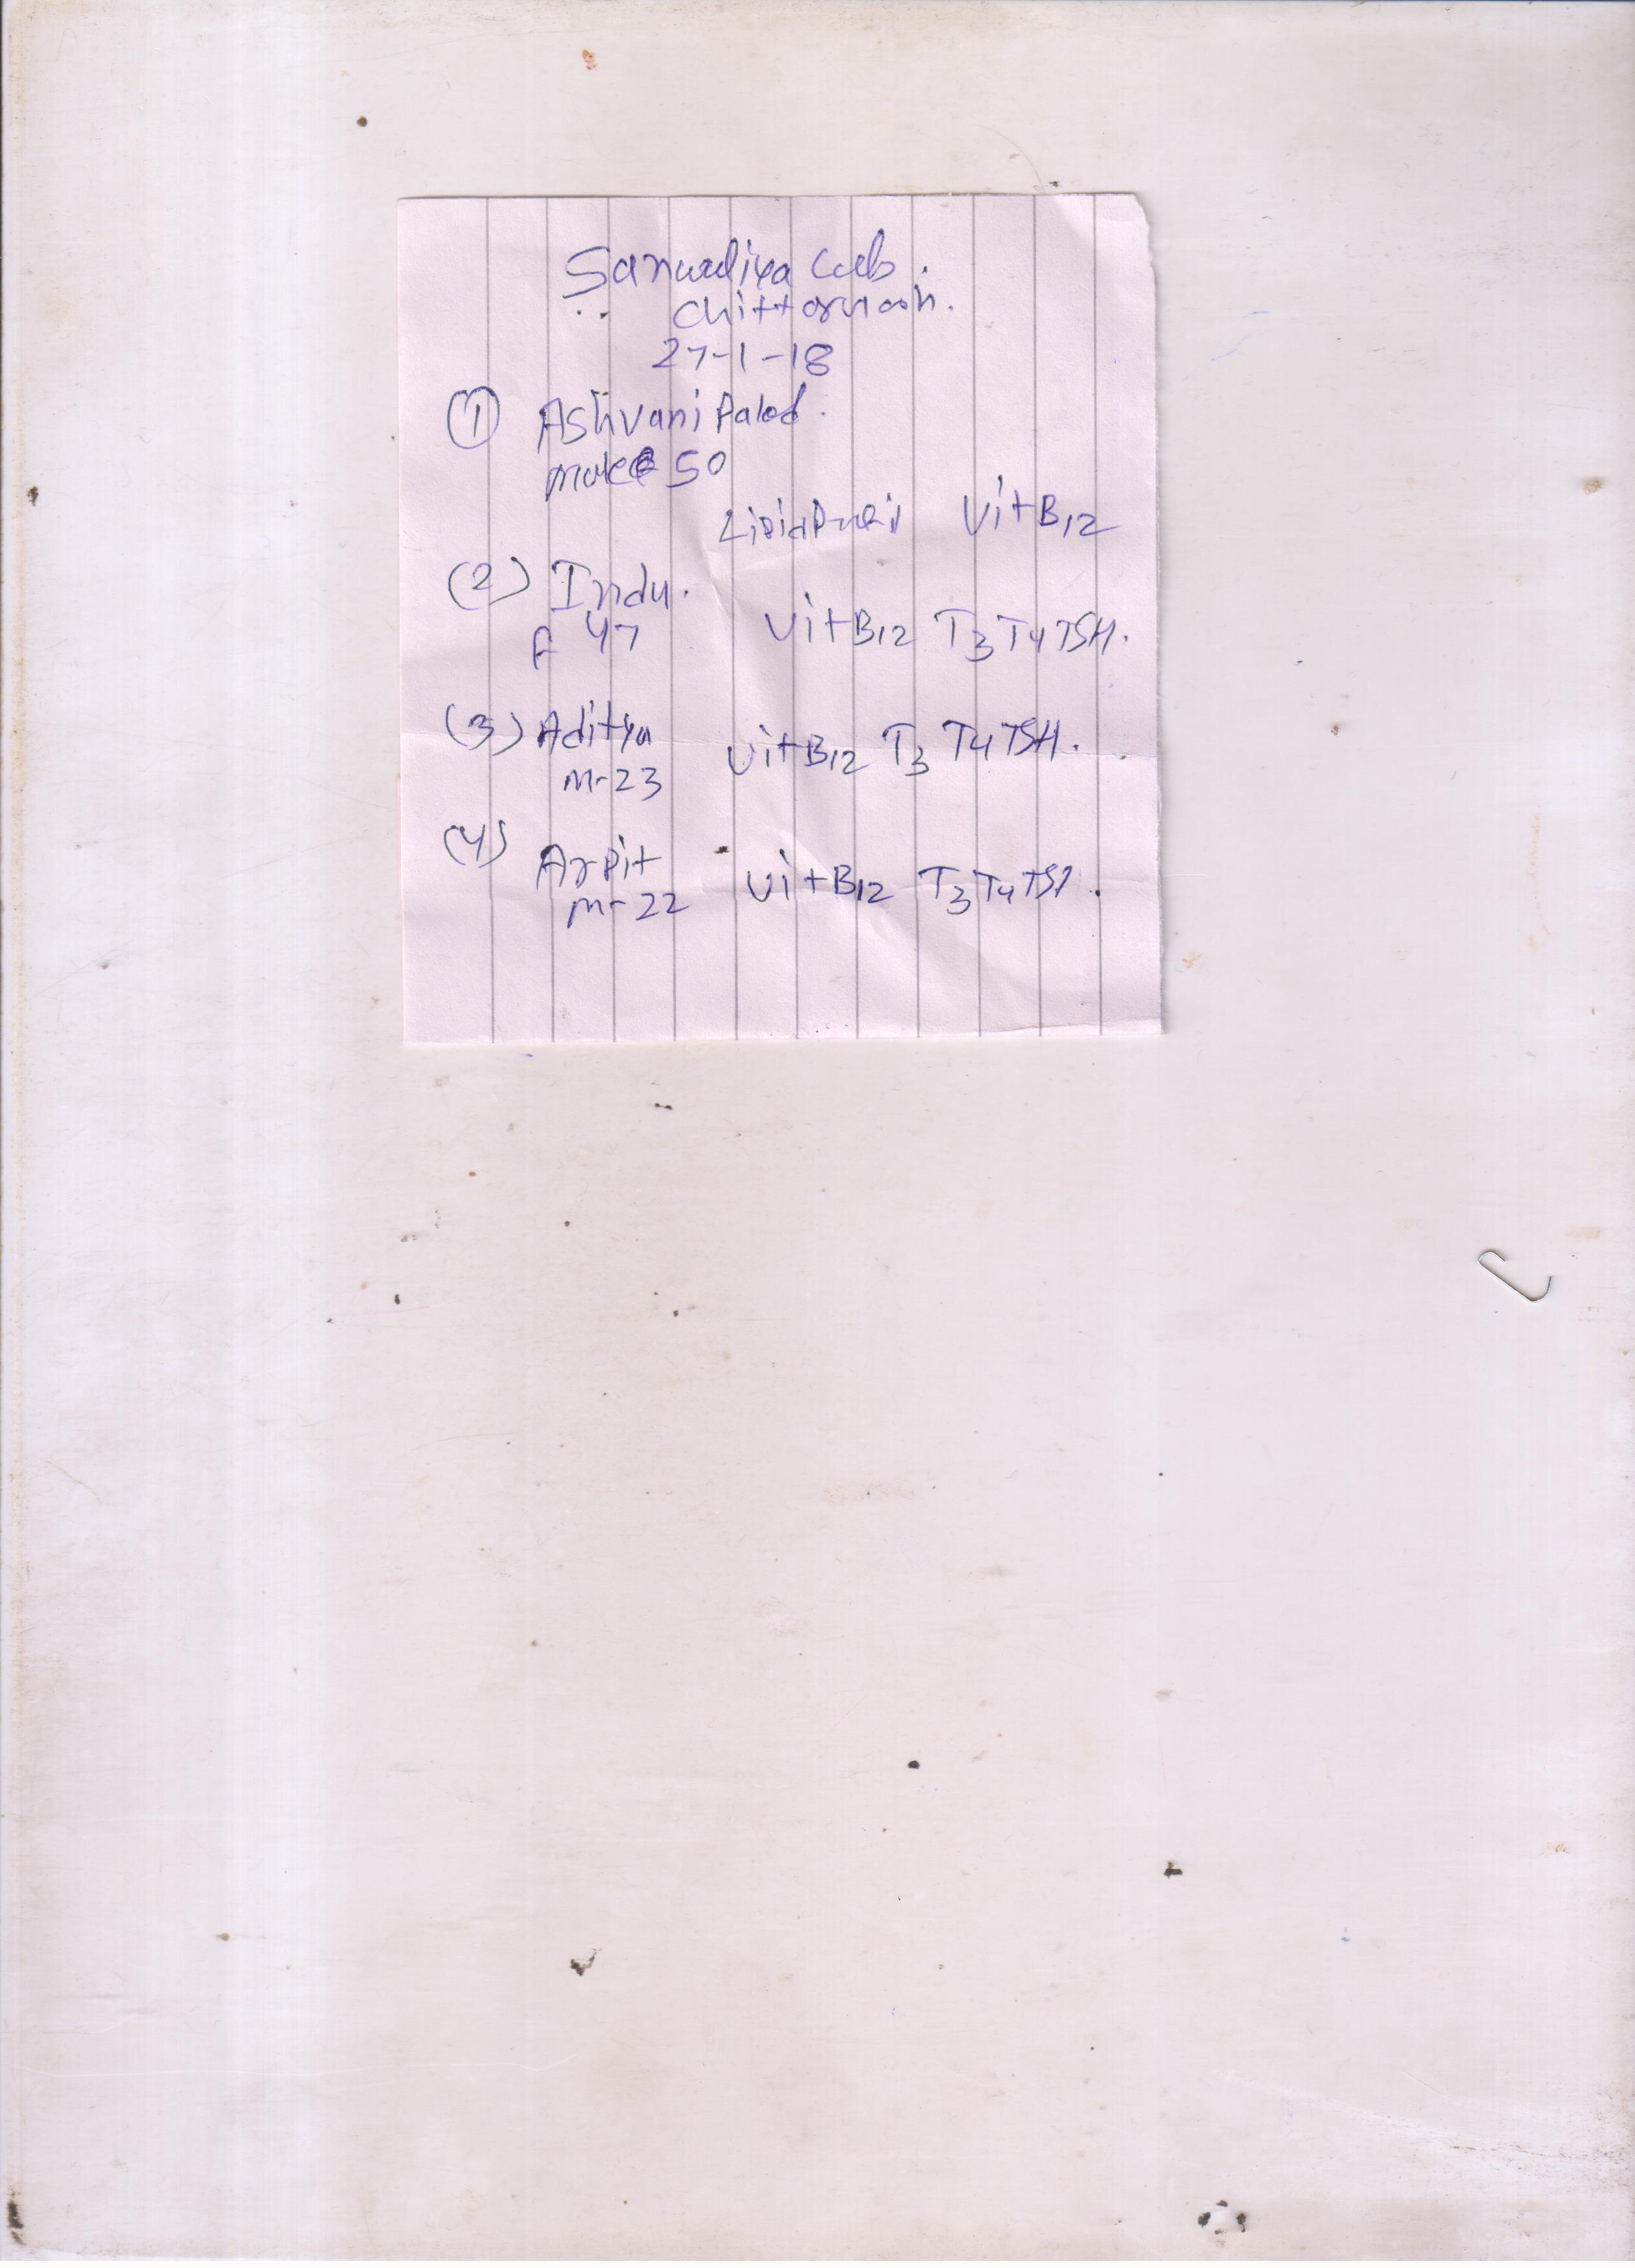 Sanwadiya Lab.
Chittorgarh.
27-1-18
(1) Ashvani Palod.
male 50
Vit B12
(2) Indu.
F 47 Vit B12 T3 T4 TSH.
(3) Aditya Vit B12 T3 T4 TSH.
M-23
(4) Arpit Vit B12 T3 T4 TSH.
M-22